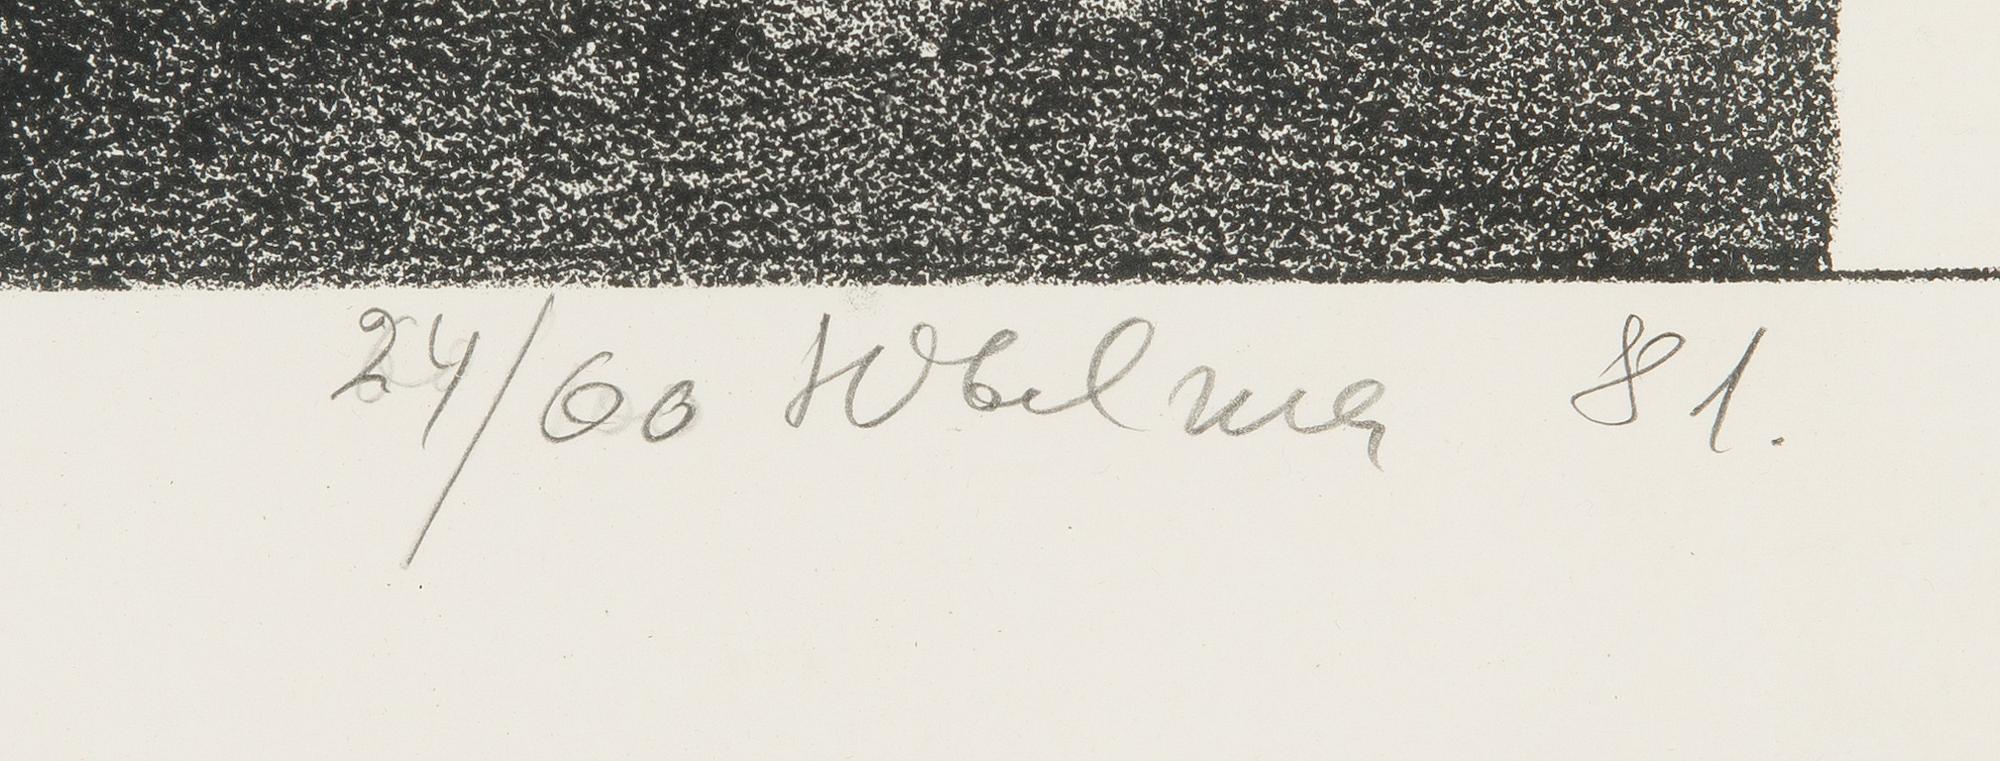 24/60 Wbel ma 81.